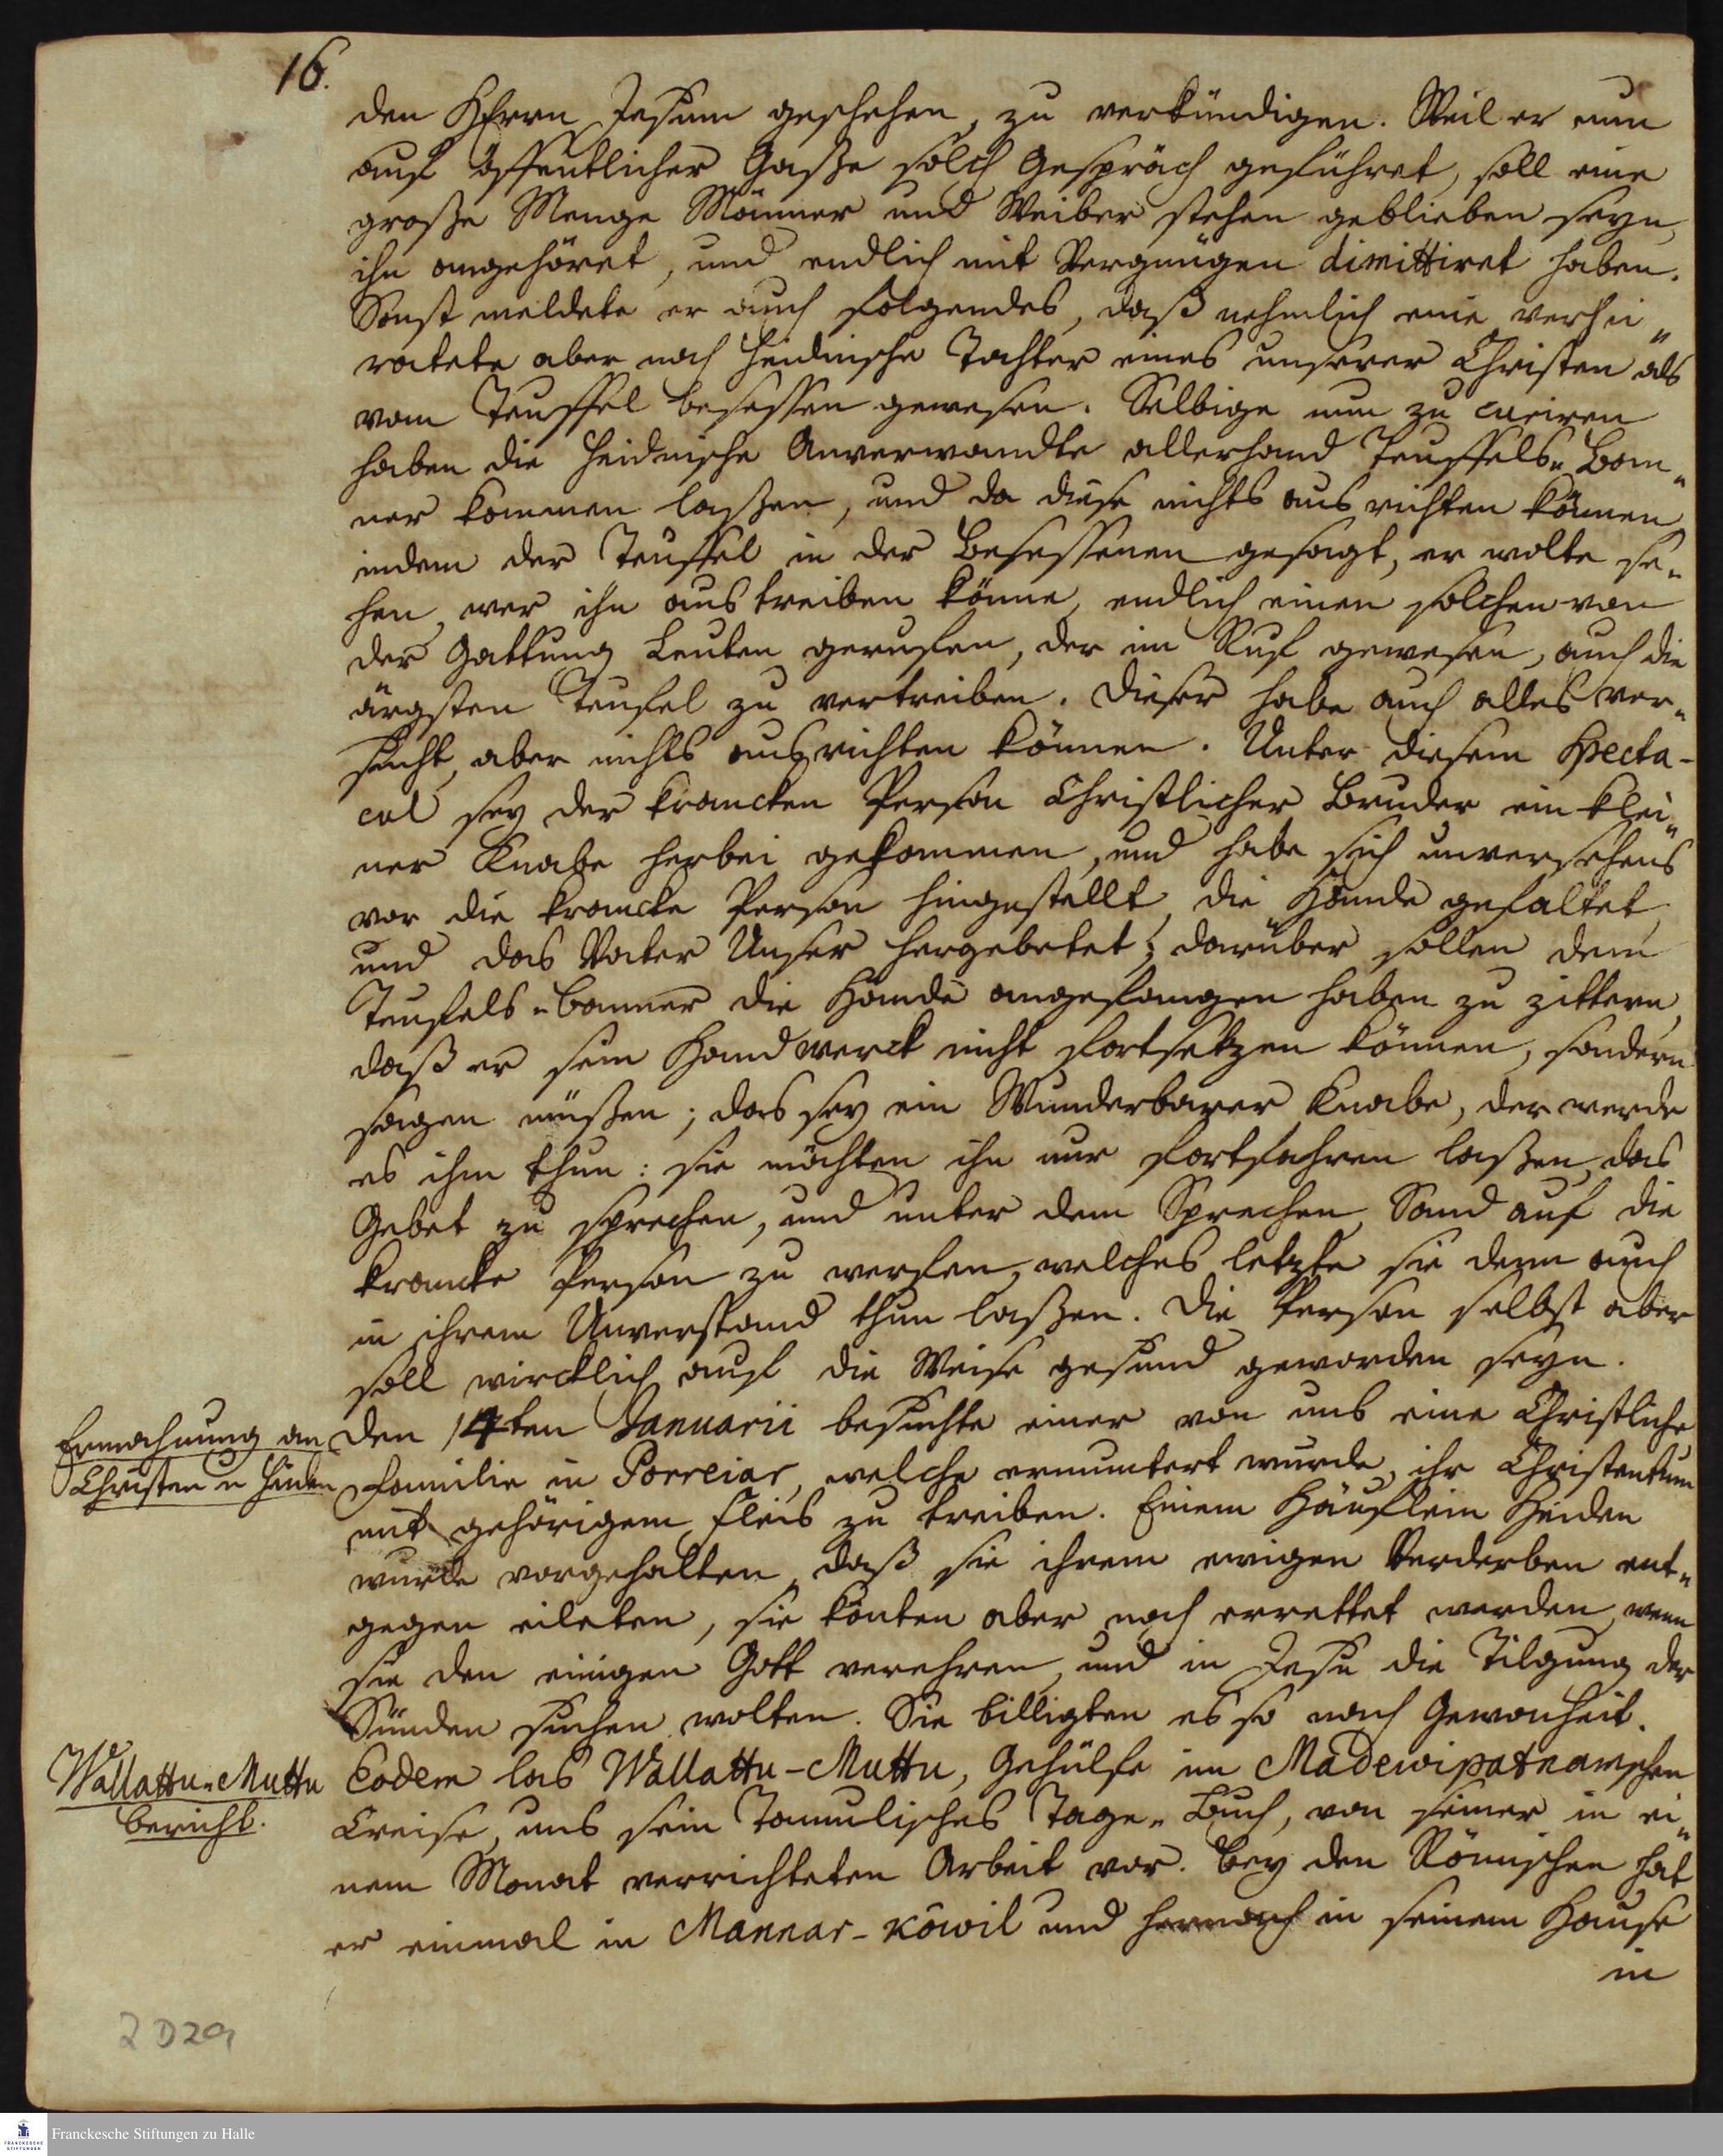 16.
den HErrn Jesum geschehen, zu verkündigen. Weil er nun
auf öffentlicher Gaße solch Gespräch geführet, soll eine
große Menge Männer und Weiber stehen geblieben seyn,
ihn angehöret, und endlich mit Vergnügen dimittiret haben.
Sonst meldete er auch folgendes, daß nehmlich eine verhei„
ratete aber noch heidnische Tochter eines unserer Christen als
vom Teuffel besessen gewesen. Selbige nun zu curiren
haben die heidnische Anverwandte allerhand Teuffels„Ban„
ner kommen laßen, und da diese nichts ausrichten können
indem der Teuffel in der Besessenen gesagt, er wolte se„
hen, wer ihn austreiben könne, endlich einen solchen von
der Gattung Leuten geruffen, der im Ruf gewesen, auch die
ärgsten Teufel zu vertreiben. Dieser habe auch alles ver„
sucht, aber nichts ausrichten können. Unter diesem Specta-
cul sey der krancken Person Christlicher Bruder ein klei„
ner Knabe herbei gekommen, und habe sich unversehens
vor die krancke Person hingestellt, die Hände gefaltet,
und das Vater Unser hergebetet; darüber sollen dem
Teufels„Banner die Hände angefangen haben zu zittern,
daß er sein Handwerck nicht fortsetzen können, sondern
sagen müßen; das sey ein Wunderbarer Knabe, der werde
es ihm thun: sie möchten ihn nur fortfahren laßen, das
Gebet zu sprechen, und unter dem Sprechen Sand auf die
krancke Person zu werfen, welches letzte sie denn auch
in ihrem Unverstand thun laßen. Die Person selbst aber
soll wircklich auf die Weise gesund geworden seyn.
Ermahnung an
Christen u Heiden
den 14ten Januarii besuchte einer von uns eine Christliche
Familie in Porreiar, welche ermuntert wurde, ihr Christentum
mit gehörigem Fleis zu treiben. Einem Häuflein Heiden
wurde vorgehalten, daß sie ihrem ewigen Verderben ent„
gegen eileten, sie könten aber noch errettet werden, wenn
sie den einigen Gott verehren, und in Jesu die Tilgung der
Sünden suchen wolten. Sie billigten es so nach Gewonheit.
Wallattu„Muttu
bericht.
Eodem las Wallattu-Muttu, Gehülfe im Madewipatnamschen
Creise, uns sein Tamulisches Tage„Buch, von seiner in ei„
nem Monat verrichteten Arbeit vor. Bey den Römischen hat
er einmal in Mannar-kôwil und hernach in seinem Hause
in
2 D29
Franckesche Stiftungen zu Halle
FRANCKESCHE
STIFTUNGEN